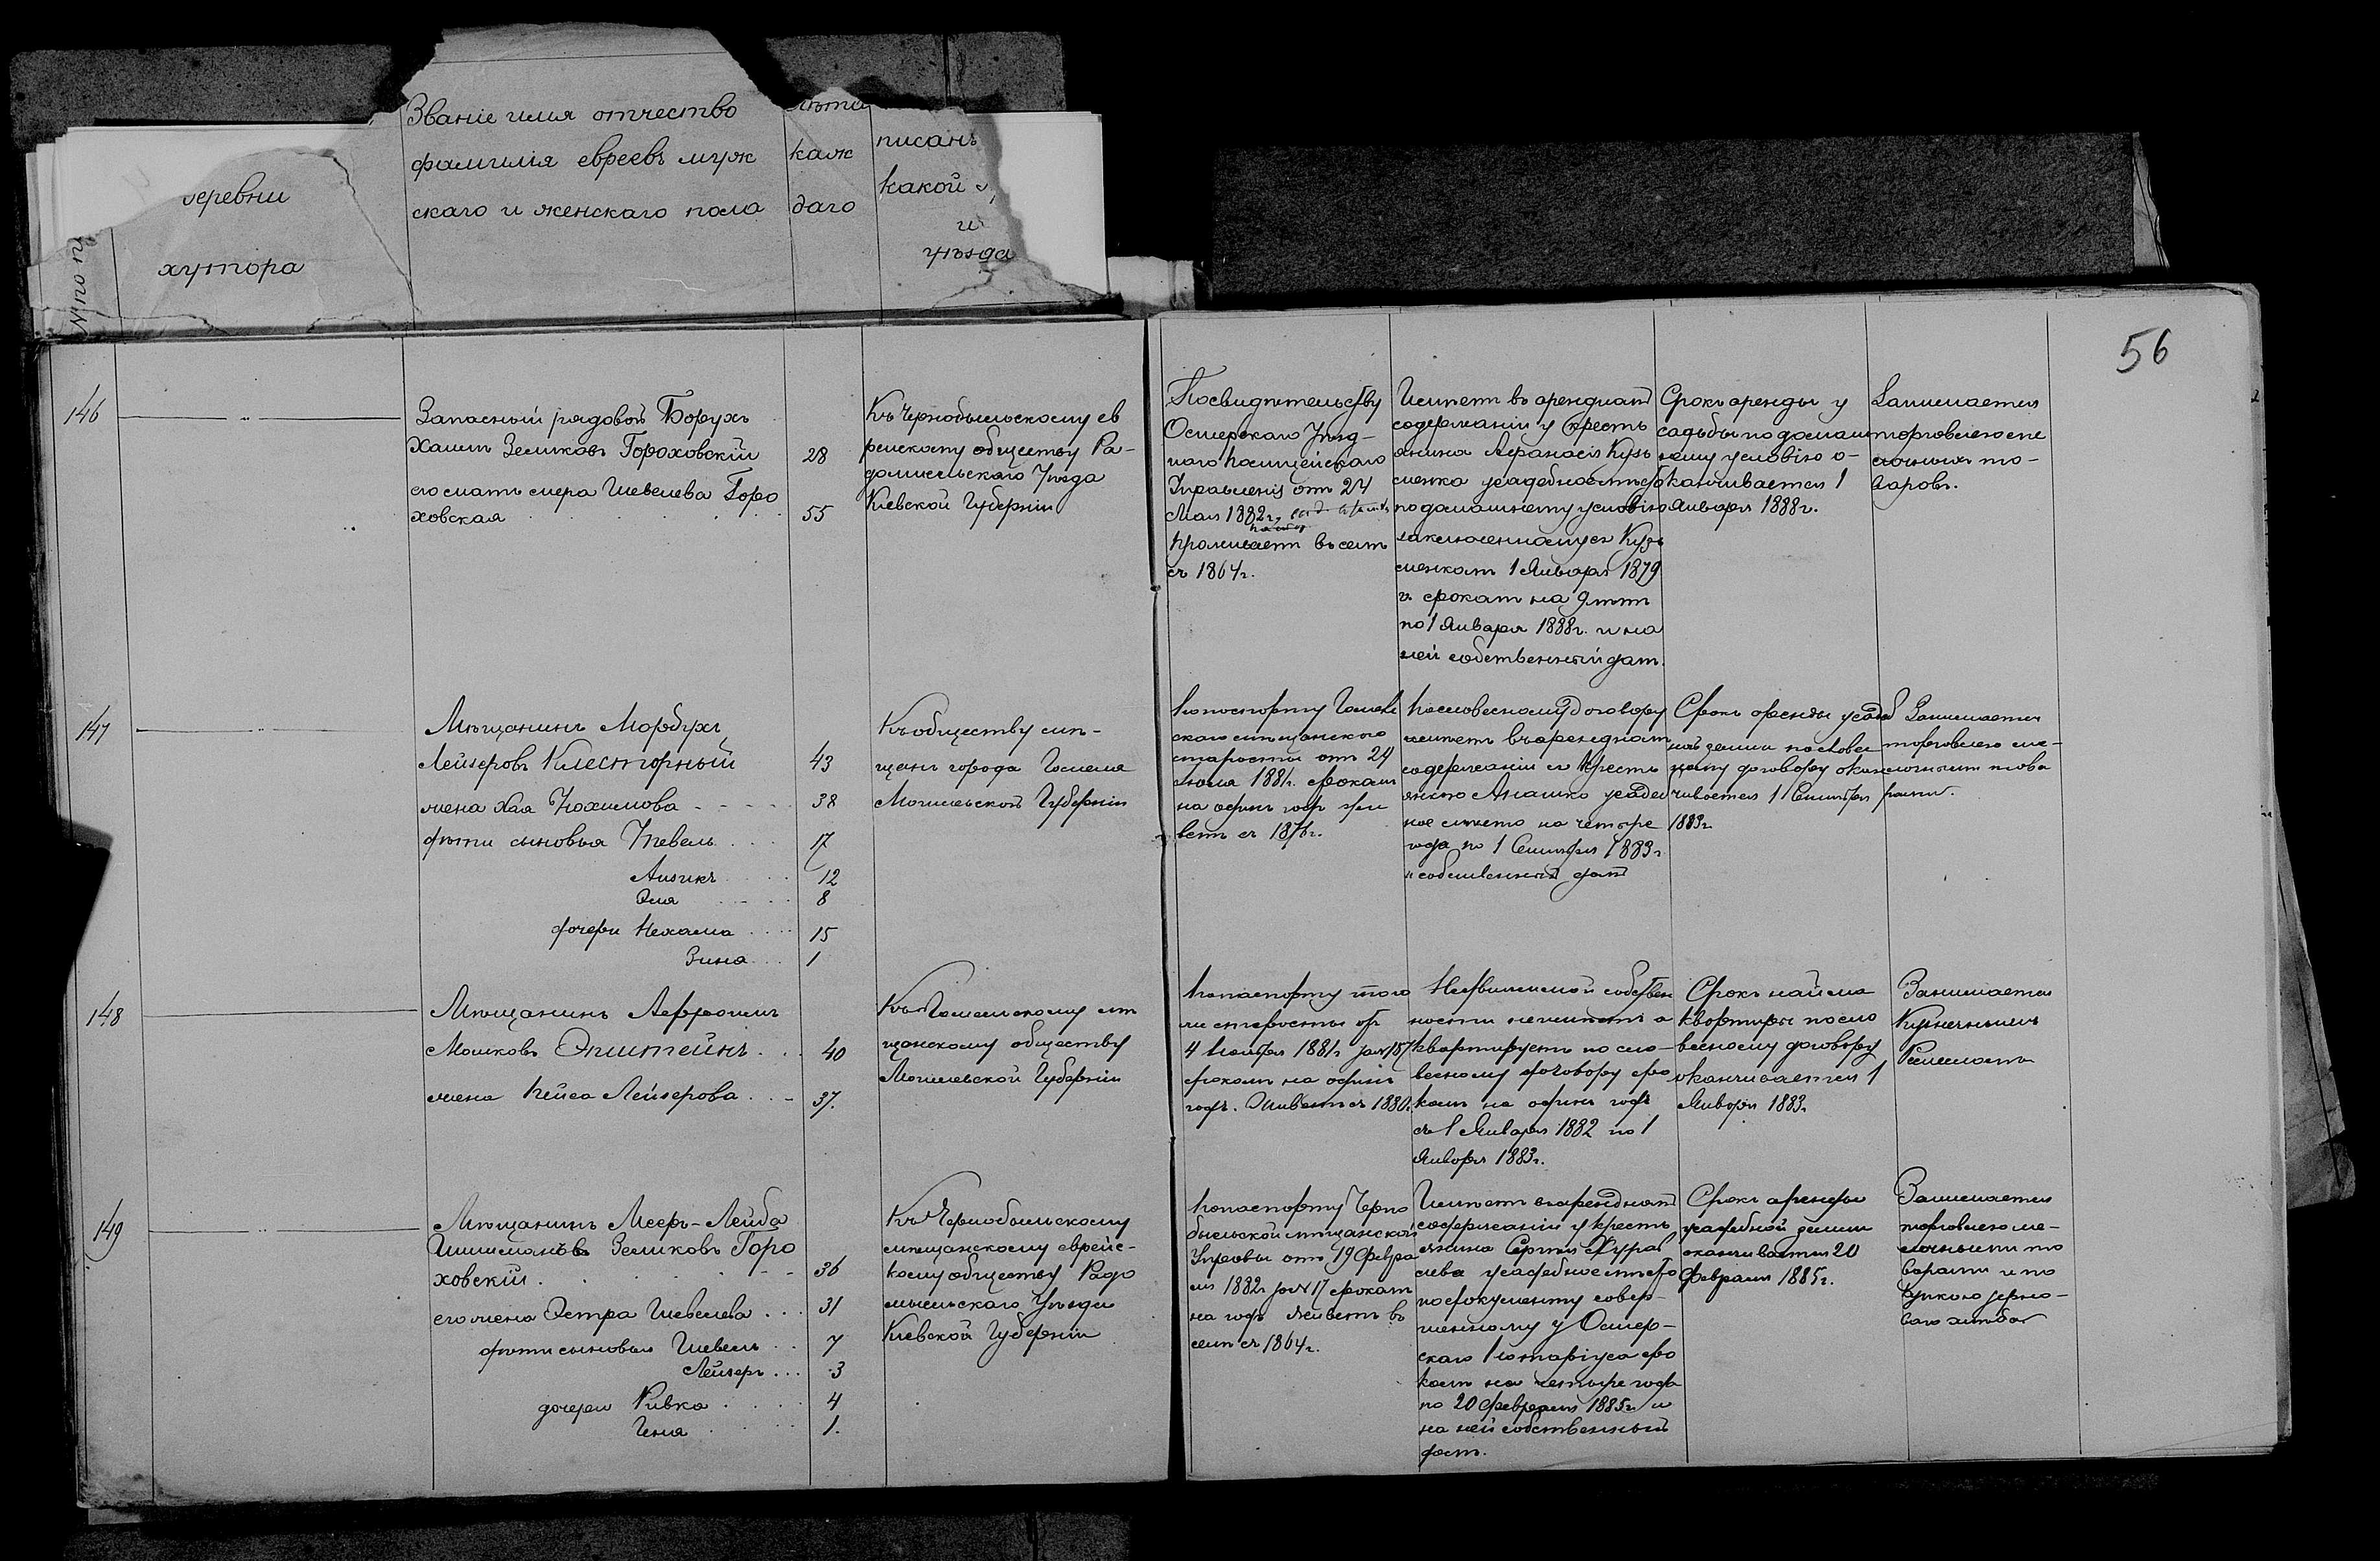 Званіе имя отчество
фамилія евреевъ муж
скаго и женскаго пола
лѣта
каж
даго
писанъ
какой
и
уѣзда
деревни
хутора
№ по п
56
146
Запасный рядовой Борухъ
Хаимъ Зеликовъ Гороховскій 28
его мать Мера Шевелева Горо
ховская 55
Къ Чернобыльскому ев
рейскому обществу Ра-
домысльскаго Уѣзда
Кіевской Губерніи
По свидѣтельству
Остерскаго Уѣзд-
наго Полицейскаго
Управленія отъ 24
Мая 1882 г.
проживаетъ въ селѣ
съ 1864 г.
Имѣетъ въ арендномъ
содержаніи у кресть
янина Афанасія Кузь
менка усадебное мѣсто
по домашнему условію
заключенному съ Кузь
менкомъ 1 Января 1879
г. срокомъ на 9 лѣтъ
по 1 Января 1888 г. и на
ней собственный домъ.
Срокъ аренды у
садьбы по домаш
нему условію о-
канчивается 1
Января 1888 г.
Занимается
торговлею ме
лочныхъ то-
варовъ.
147
Мѣщанинъ
Лейзеровъ Клесторный 43
жена Хая Нохимова 38
дѣти сыновья 17
Айзикъ 12
Эля 8
дочери Нехама 15
Зина 1
Къ обществу мѣ-
щанъ города Гомеля
Могилевской Губерніи
По паспорту Гомель
скаго мѣщанскаго
старосты отъ 24
Іюля 1881 г. срокомъ
на одинъ годъ жи
ветъ съ 187 г.
По словесному договору
имѣетъ въ арендномъ
содержаніи у кресть
янки Анашко усадеб
ное мѣсто на четыре
года по 1 Сентября 1883 г.
и собственный домъ
Срокъ аренды усадеб
ной земли по словес
ному договору окан
чивается 1 Сентября
1883 г.
Занимается
торговлею ме-
лочными това
рами.
148
Мѣщанинъ Афроимъ
Мошковъ Эпштейнъ 40
жена Пейса Лейзерова 37.
Къ Гомельскому мѣ
щанскому обществу
Могилевской Губерніи
По паспорту того
же старосты отъ
4 Ноября 1881 г. за №
срокомъ на одинъ
годъ. Живетъ съ 1880 г.
Недвижимой собствен
ности не имѣетъ а
квартируетъ по сло-
весному договору сро
комъ на одинъ годъ
съ 1 Января 1882 по 1
Января 1883 г.
Срокъ найма
квартиры по сло
весному договору
оканчивается 1
Января 1883 г.
Занимается
Кузнечнымъ
Ремесломъ
149
Мѣщанинъ Мееръ-Лейба
Шиимановъ Зеликовъ Горо
ховскій 36
его жена Эстра Шевелева 31
дѣти сыновья Шевель 7
Лейзеръ 3
дочери Ривка 4
Геня 1.
Къ Чернобыльскому
мѣщанскому еврейс-
кому обществу Радо
мысльскаго Уѣзда
Кіевской Губерніи
По паспорту Черно
быльской мѣщанской
Управы отъ 19 Февра
ля 1882 г. за № 17 срокомъ
на годъ живетъ въ
селѣ съ 1864 г.
Имѣетъ въ арендномъ
содержаніи у кресть
янина Сергія Журав
лева усадебное мѣсто
по документу совер-
шенному у Остер-
скаго Нотаріуса сро
комъ на четыре года
по 20 Февраля 1885 г. и
на ней собственный
домъ.
Срокъ аренды
усадебной земли
оканчивается 20
Февраля 1885 г.
Занимается
торговлею ме-
лочными то
варами и по
купкою зерно-
ваго хлѣба